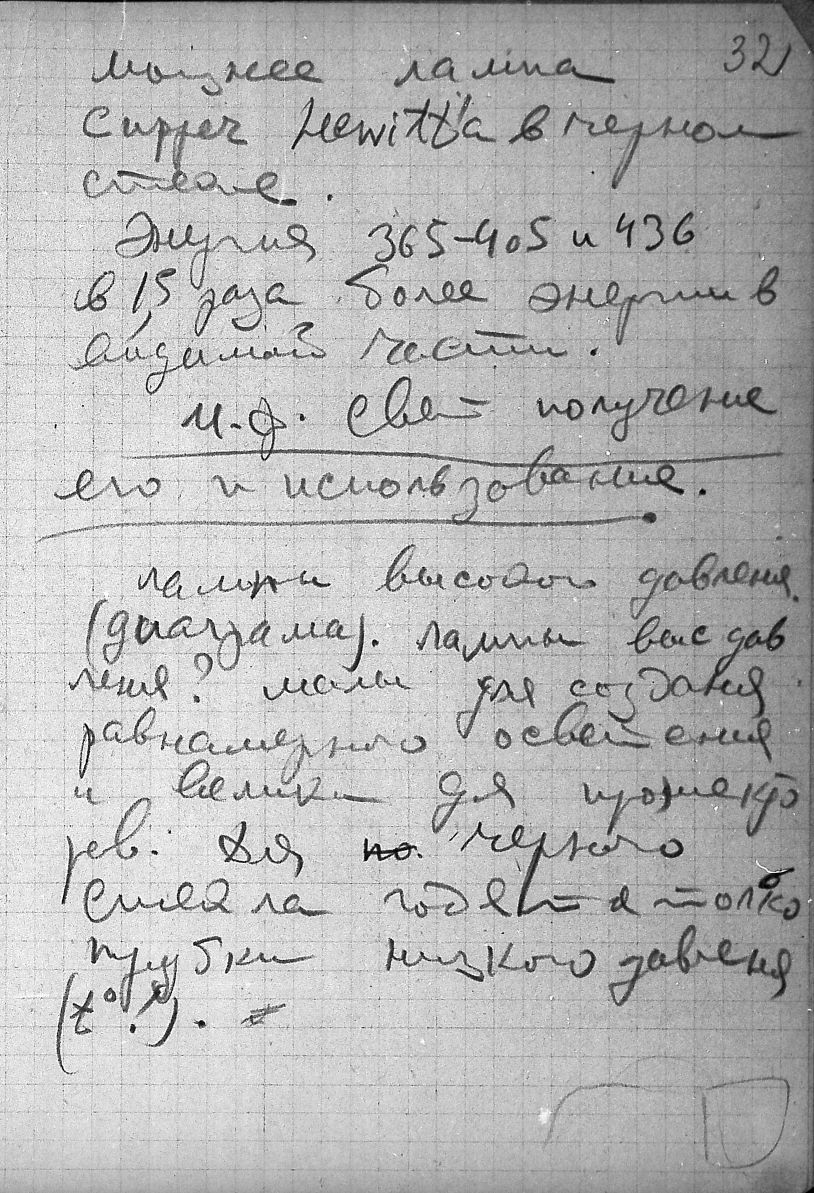 32
мощнее лампа
Cupper Hewitt'a в черном
стекле.
Энергия 365-405 и 436
в 1,5 раза более энергии в
видимой части.
и.ф. свет получение
его и использование.
лампы высокого давления.
(диаграма). Лампы выс дав
ления? малы для создания
равнамерного освещения
и велики для прожекто
ров. Для но. черного
стекла годятся только
трубки низкого давленя
(t°!).